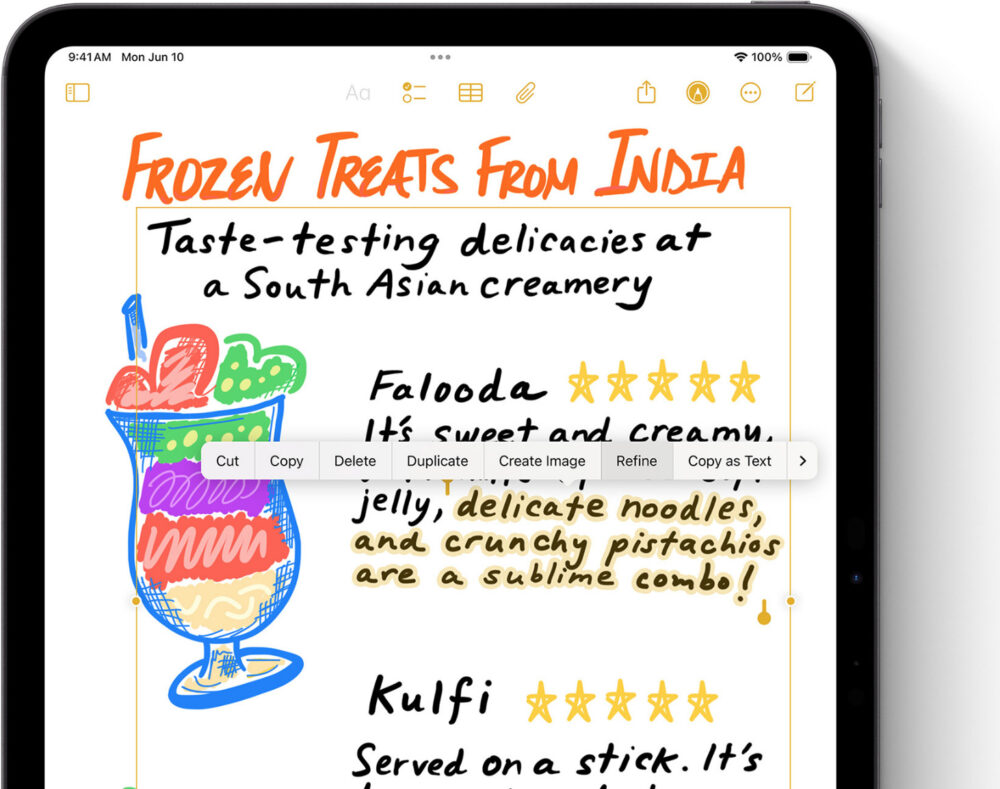 9:41AM Mon Jun 10
100%
Aa
FROZEN TREATS FROM INDIA
Taste-testing delicacies at
a South Asian creamery
Falooda
It's sweet and creamy,
Cut Copy Delete Duplicate Create Image Refine Copy as Text
jelly, delicate noodles,
and crunchy pistachios
are a sublime combo!
Kulfi
Served on a stick. It's